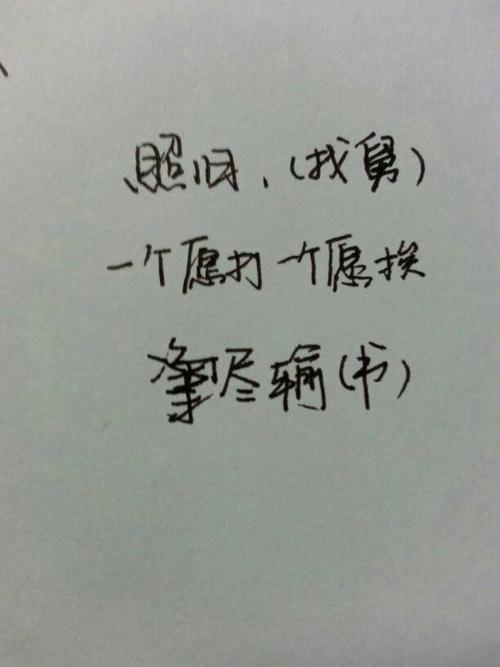 照旧、(找舅)
一个愿打一个愿挨
尽输(书)